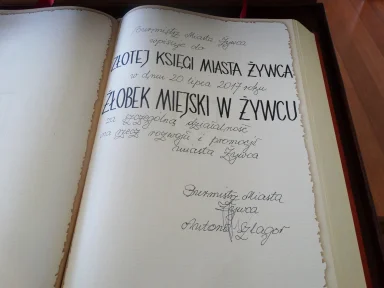 Burmistrz Miasta Żywca
wpisuje do
ZŁOTEJ KSIĘGI MIASTA ŻYWCA
w dniu 20 lipca 2017 roku
ŻŁOBEK MIEJSKI W ŻYWCU
za szczególną działalność
na rzecz rozwoju i promocji
miasta Żywca
Burmistrz Miasta
Żywca
Antoni Szlagor